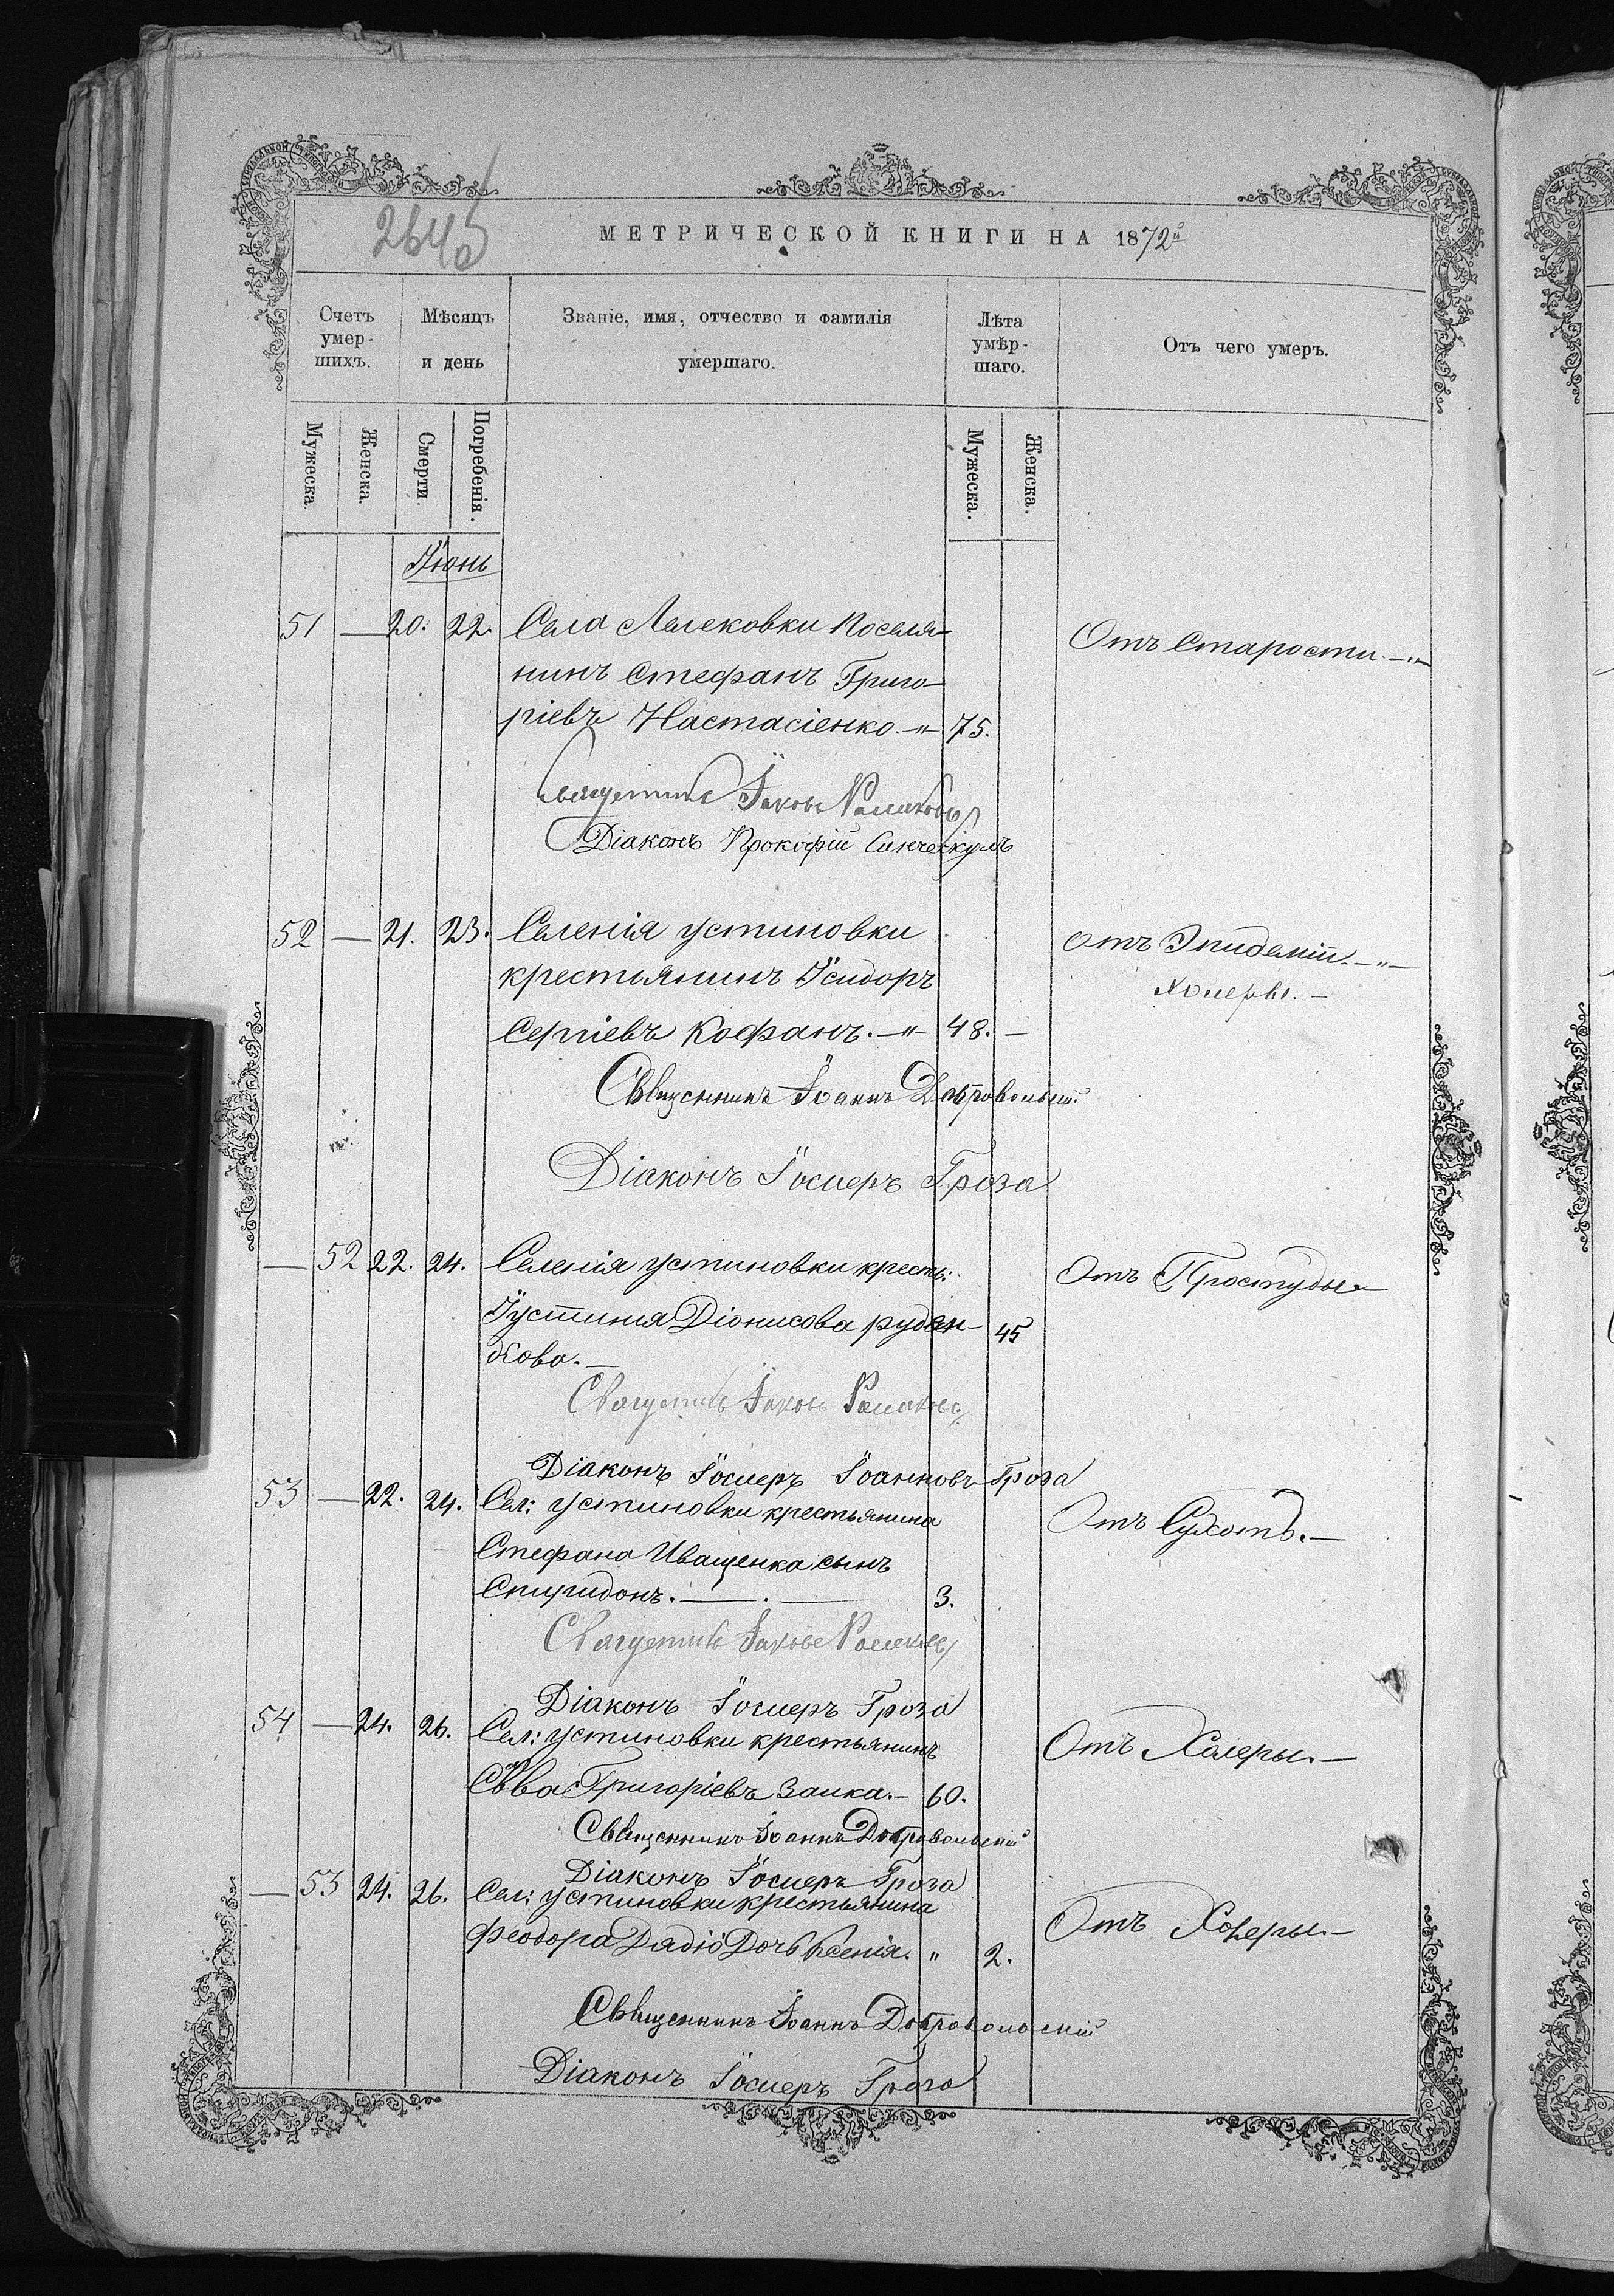 МЕТРИЧЕСКОЙ КНИГИ НА 1872й
Счетъ умер-шихъ.
Мѣсяцъ и день
Званіе, имя, отчество и фамилія умершаго.
Лѣта умѣр-шаго.
Отъ чего умеръ.
Мужеска.
Женска.
Смерти.
Погребенія.
Мужеска.
Женска.
Іюнь
51 — 20. 22. Села Лелековки поселя- Отъ Старости.
нинъ Стефанъ Григо-
ріевъ Настасіенко. 75.
Священникъ Іаковъ
Діаконъ Прокофій
52 — 21. 23. Селенія Устиновки отъ Эпидеміи
крестьянинъ Ісидоръ Холеры. —
Сергіевъ Кофанъ. 48. —
Священникъ Іоаннъ Добровольскій
Діаконъ Іосиѳръ Гроза
— 52 22. 24. Селенія Устиновки кресть: Отъ Простуды
Іустинія Діонисова Руден- 45
кова. —
Священникъ Іаковъ
Діаконъ Іосиѳръ Іоанновъ Гроза
53 — 22. 24. Сел: Устиновки крестьянина Отъ Сухотъ. —
Стефана Иващенка сынъ
Спиридонъ. — . — 3.
Священникъ Іаковъ
Діаконъ Іосиѳръ Гроза
54 — 24. 26. Сел: Устиновки крестьянинъ Отъ Холеры. —
Савва Григоріевъ Заика. — 60.
Священникъ Іоаннъ Добровольскій
Діаконъ Іосиѳръ Гроза
— 53 24. 26. Сел: Устиновки крестьянина Отъ Холеры. —
Феодора Дочь Ксенія. " 2.
Священникъ Іоаннъ Добровольскій
Діаконъ Іосиѳръ Гроза